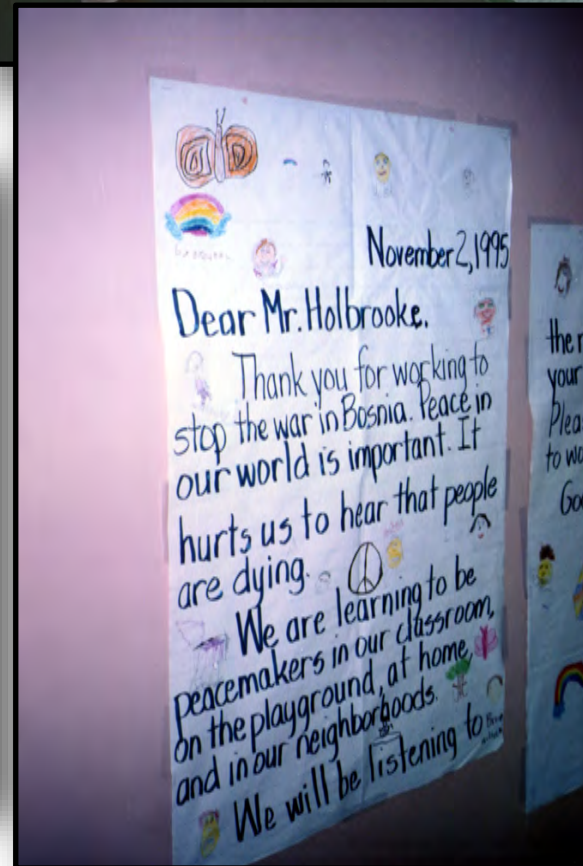 November 2, 1995
Dear Mr. Holbrooke.
Thank you for working to
stop the war in Bosnia. Peace in
our world is important. It
hurts us to hear that people
are dying.
We are learning to be
peacemakers in our classroom,
on the playground, at home,
and in our neighborhoods.
We will be listening to
the
your
to